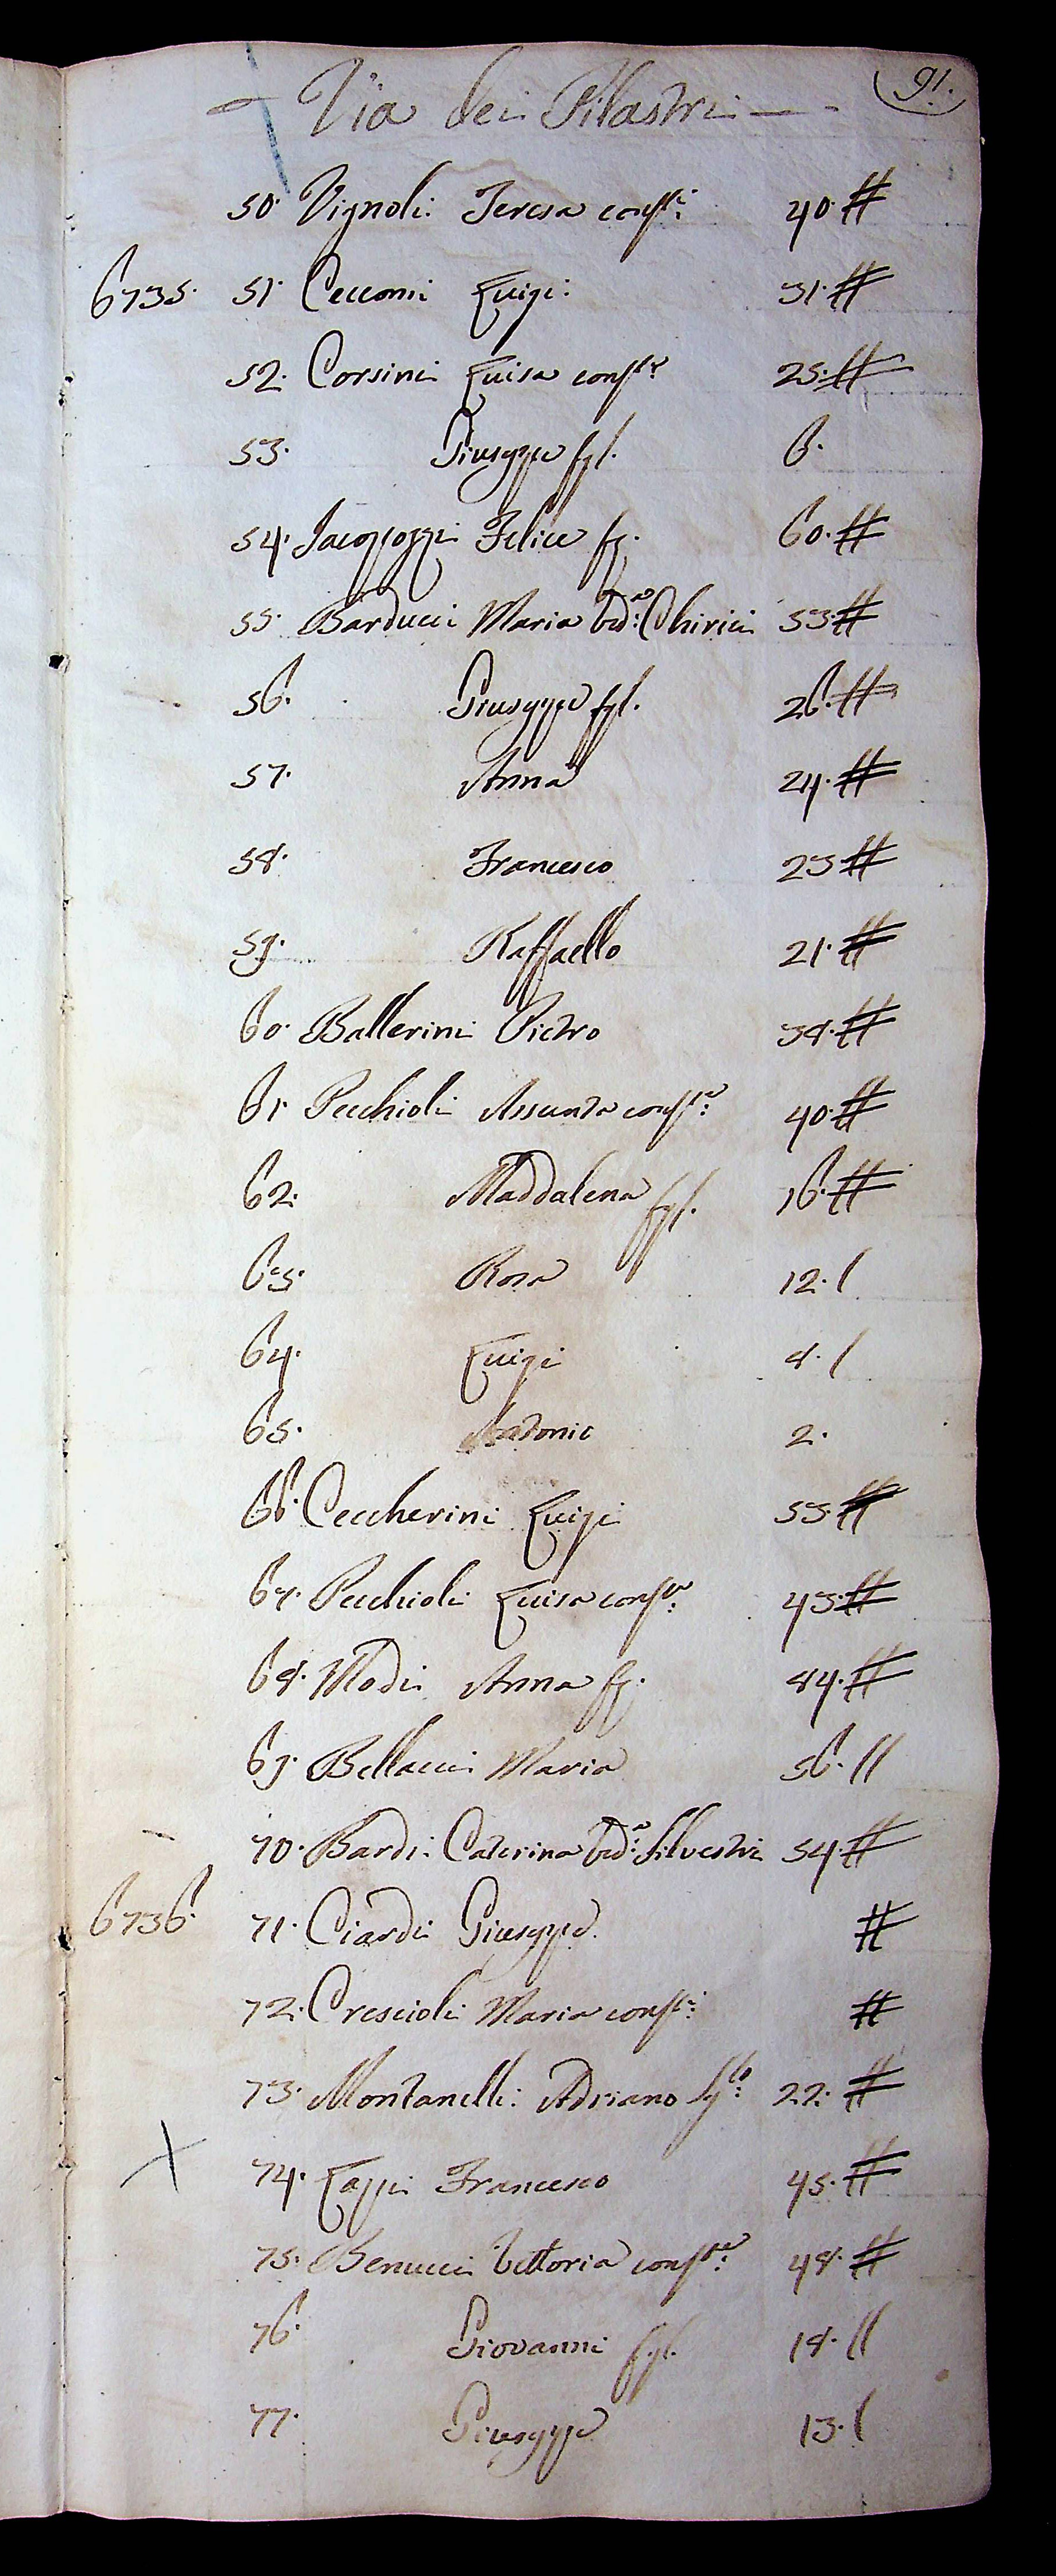 91.
Via dei Pilastri
50. Vignoli Teresa cons.te 40. #
6735. 51. Cecconi Luigi 31. #
52. Corsini Luisa cons.te 25. #
53. Giuseppe fgl. 6.
54. Jacopozzi Felice fg. 60. #
55. Barducci Maria ved.a Chirici 53. #
56. Giuseppe fgl. 26. #
57. Anna 24. #
58. Francesco 23 #
59. Raffaello 21. #
60. Ballerini Pietro 38. #
61. Pecchioli Assunta cons.te 40. #
62. Maddalena fgl. 16. #
63. Rosa 12. /
64. Luigi 8. /
65. Antonio 2.
66. Ceccherini Luigi 55. #
67. Pecchioli Luisa cons.te 43. #
68. Modi Anna fg. 84. #
69. Bellacci Maria 56. //
70. Bardi Caterina ved.a Silvestri 54. #
6736. 71. Ciardi Giuseppe #
72. Crescioli Maria cons.te #
73. Montanelli Adriano fg.lo 22. #
X 74. Lappi Francesco 45. #
75. Benucci Vittoria cons.te 48. #
76. Giovanni fgl. 18. //
77. Giuseppe 13. /